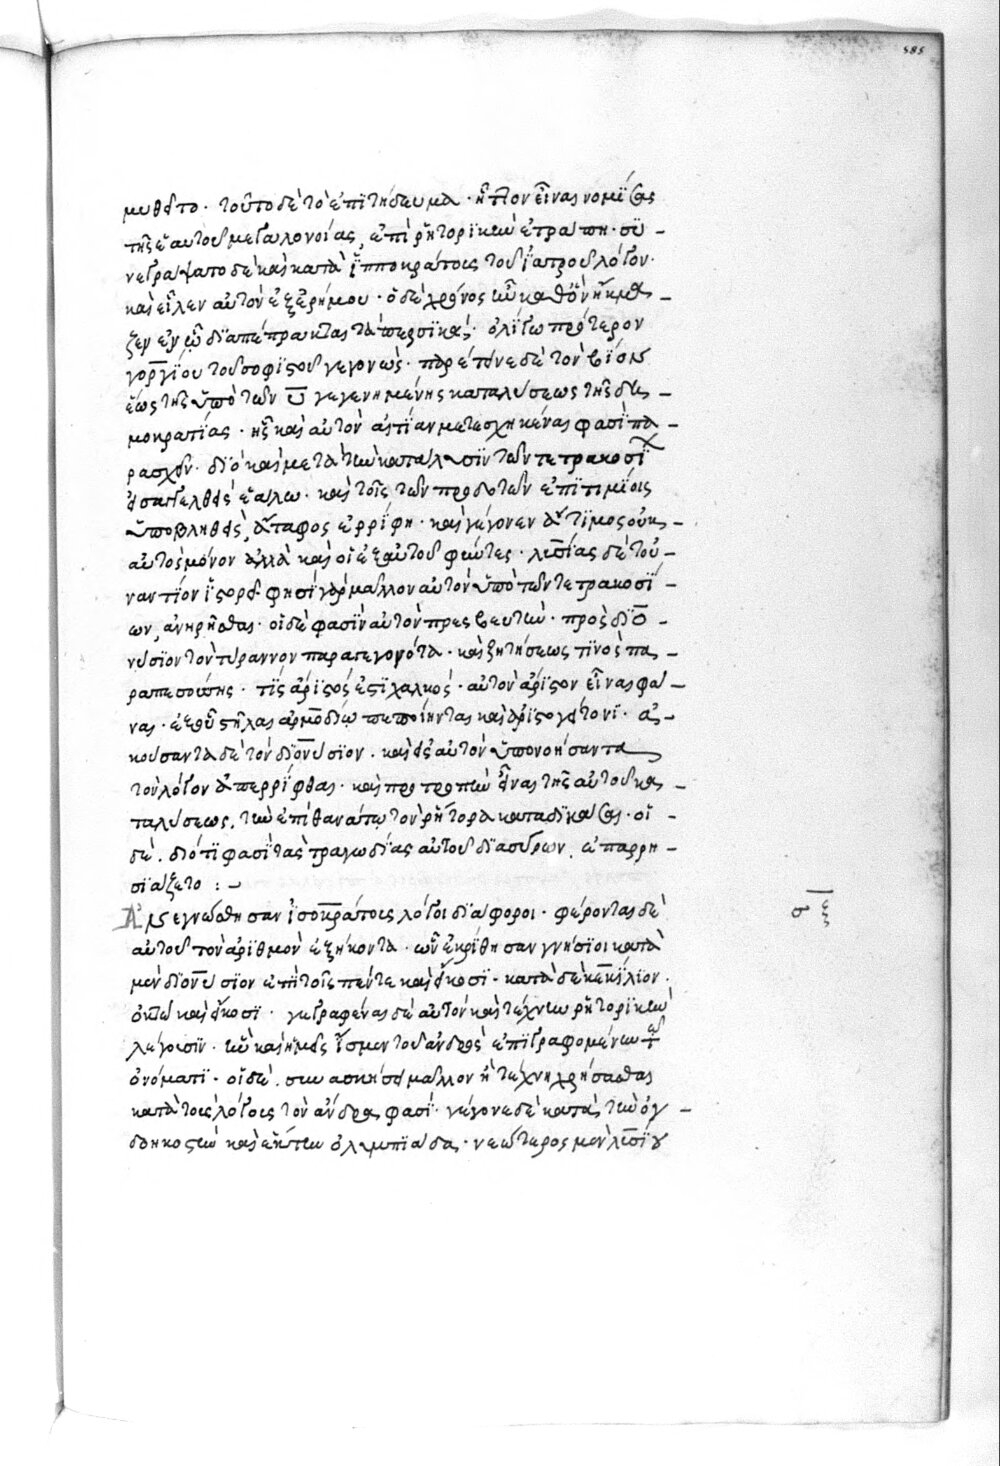 585
μυθεῖτο· τοῦτο δὲ τὸ ἐπιτήδευμα· ἧττον εἶναι νομίσας
τῆς ἑαυτοῦ μεγαλονοίας, ἐπὶ ῥητορικὴν ἐτράπη· συ –
νεγράψατο δὲ καὶ κατὰ ἱπποκράτους τοῦ ἰατροῦ λόγον·
καὶ εἷλεν αὐτὸν ἐξ ἐρήμου· ὁ δὲ χρόνος ἦν καθ' ὃν ἤκμα –
ζεν ἐν ᾧ διαπέπρακται τὰ περσικά· ὀλίγω πρότερον
γοργίου τοῦ σοφιστοῦ γεγονώς· παρέτεινε δὲ τὸν βίον
ἕως τῆς ὑπὸ τῶν υ̅ γεγενημένης καταλύσεως τῆς δη –
μοκρατίας· ἧς καὶ αὐτὸν αἰτίαν μετεσχηκέναι φασὶ πα –
ρασχεῖν· διὸ καὶ μετὰ τὴν κατάλυσιν τῶν τετρακοσί
εἰσαγγελθεὶς ἑάλω· καὶ τοῖς τῶν προδοτῶν ἐπιτιμίοις
ὑποβληθεὶς, ἄταφος ἐρρίφη· καὶ γέγονεν ἄτιμος οὐκ –
αὐτὸς μόνον ἀλλὰ καὶ οἱ ἐξ αὐτοῦ φύντες· λυσίας δὲ τοὐ –
ναντίον ἱστορεῖ φησὶ γὰρ μᾶλλον αὐτὸν ὑπὸ τῶν τετρακοσί –
ων, ἀνηρῆσθαι· οἱ δὲ φασὶν αὐτὸν πρεσβευτὴν· πρὸς διο –
νύσιον τὸν τύραννον παραγεγονότα· καὶ ζητήσεως τινὸς πα –
ραπεσούσης· τίς ἄριστός ἐστι χαλκός· αὐτὸν ἄριστον εἶναι φά –
ναι· ἐξ οὗ στῆλαι ἁρμοδίω πεποίηνται καὶ ἀριστογείτονι· ἀ –
κούσαντα δὲ τὸν διονύσιον· καὶ εἰς αὐτὸν ὑπονοήσαντα
τὸν λόγον ἀπερρίφθαι· καὶ προτροπὴν εἶναι τῆς αὐτοῦ κα –
ταλύσεως, τὴν ἐπὶ θανάτω τὸν ῥήτορα καταδικάσαι· οἱ –
δὲ, διότι φασὶ τὰς τραγωδίας αὐτοῦ διασύρων, ἐπαρρη –
σιάζετο :–
Ἀνεγνώσθησαν ἰσοκράτους λόγοι διάφοροι· φέρονται δὲ
αὐτοῦ τὸν ἀριθμὸν ἑξήκοντα· ὧν ἐκρίθησαν γνήσιοι κατὰ
μὲν διονύσιον ἐπὶ τοῖς πέντε καὶ εἴκοσι· κατὰ δὲ κεκίλιον·
ὀκτὼ καὶ εἴκοσι· γεγραφέναι δὲ αὐτὸν καὶ τέχνην ῥητορικὴν
λέγουσιν· ἣν καὶ ἡμεῖς ἴσμεν τοῦ ἀνδρὸς ἐπιγραφομένην τῶ
ὀνόματι· οἱ δὲ, συνασκήσει μᾶλλον ἢ τέχνη χρήσασθαι
κατὰ τοὺς λόγους τὸν ἄνδρα φασί· γέγονε δὲ κατὰ, τὴν ὀγ –
δοηκοστὴν καὶ ἕκτην ὀλυμπιάδα· νεώτερος μὲν λυσίου
σ ξ̅